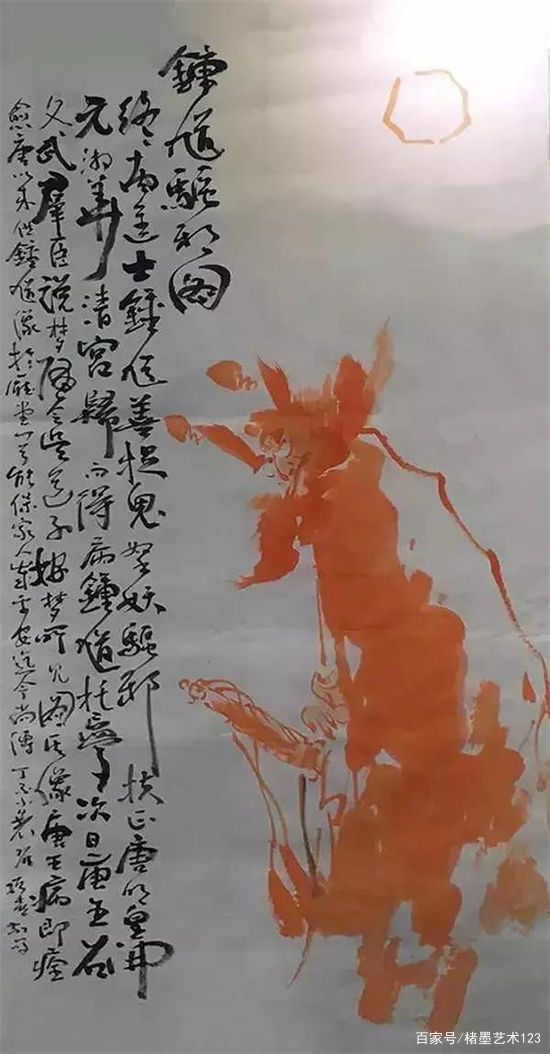 鍾馗驅邪圖
終南進士鍾馗善捉鬼拏妖驅邪扶正唐明皇開
元游華清宮歸而得病鍾馗托夢次日唐王召
文武群臣說夢隨令吳道子按夢所見圖其像唐王病即痊
愈唐以來供鍾馗像於廳堂可能保家人出平安迄今尚傳
百家号/楮墨艺术123